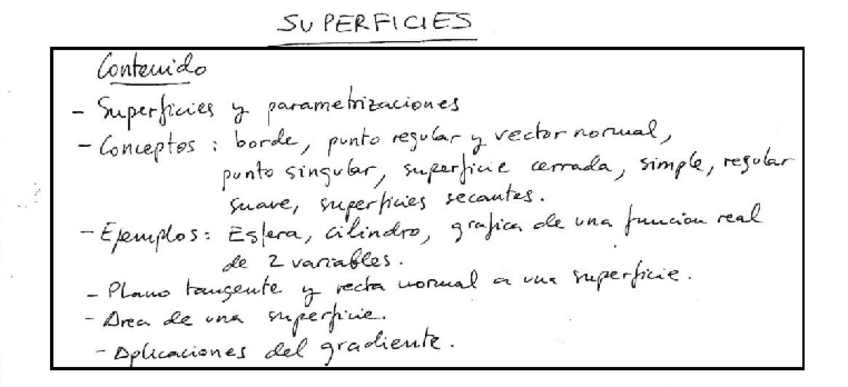 SUPERFICIES
Contenido
- Superficies y parametrizaciones
- Conceptos : borde, punto regular y vector normal,
punto singular, superficie cerrada, simple, regular
suave, superficies secantes.
- Ejemplos: Esfera, cilindro, grafica de una funcion real
de 2 variables.
- Plano tangente y recta normal a una superficie.
- Area de una superficie.
- Aplicaciones del gradiente.